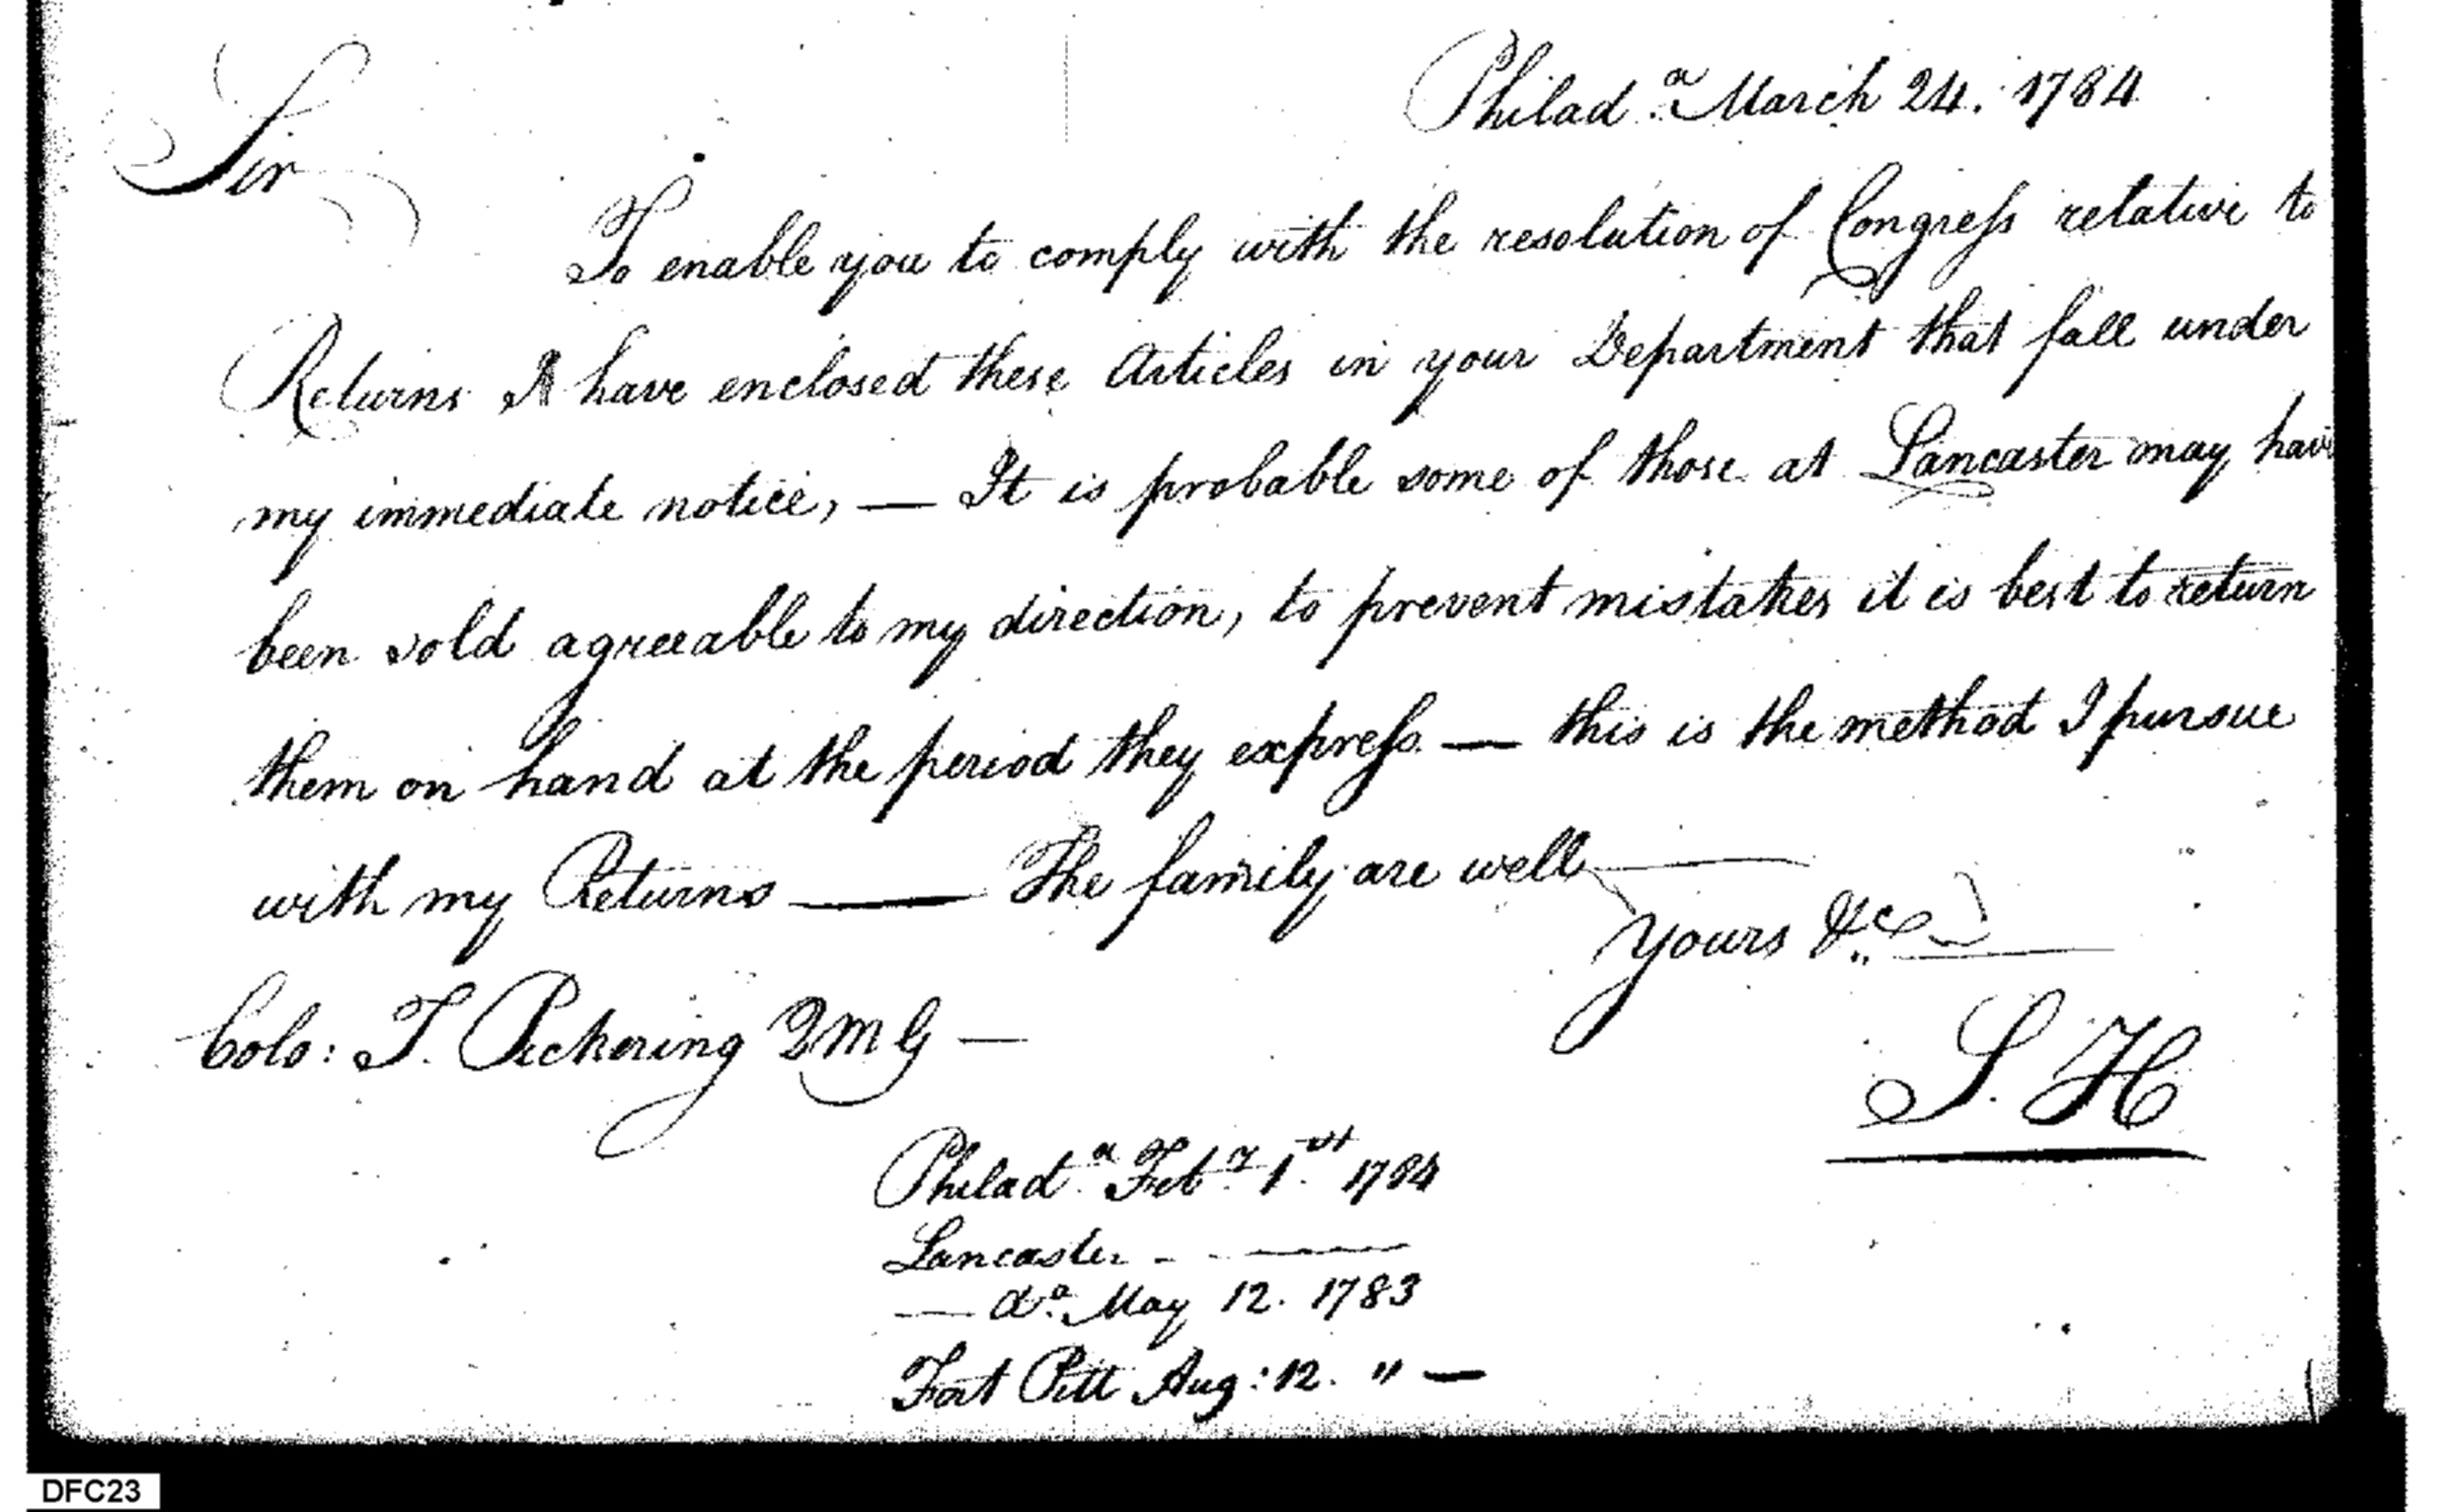 Philad.ª March 24. 1784
Sir
To enable you to comply with the resolution of Congreſs relative to
Returns I have enclosed these Articles in your Department that fall under
my immediate notice, — It is probable some of those at Lancaster may have
been sold agreeable to my direction, to prevent mistakes it is best to return
them on hand at the period they expreſs — this is the method I pursue
with my Returns — The family are well —
Yours &c
Colo: T. Pickering QMG —
S. H
Philad.ª Feb.y 1.st 1784
Lancaster - - —
— dº. May 12. 1783
Fort Pitt Aug: 12. " —
DFC23